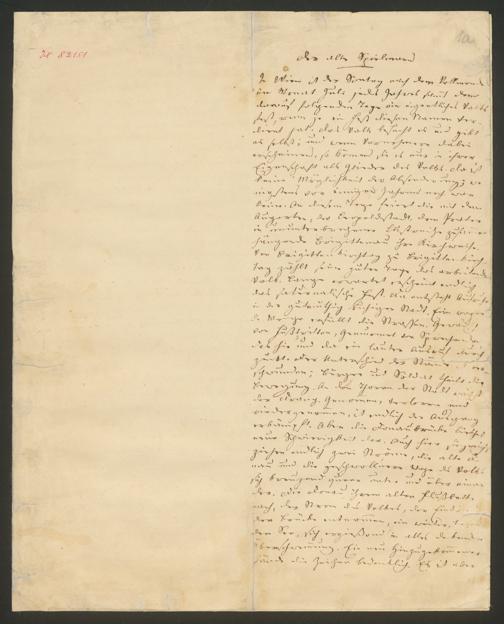 10
IN 82151
Der alte Spielmann
In Wien ist der Sontag nach dem Vollmonde
im Monat Juli jedes Jahres samt dem
darauf folgenden Tage ein eigentliches Volks
fest, wenn je ein Fest diesen Namen ver-
dient hat. Das Volk besucht es und gibt
es selbst; und wenn Vornehmere dabei
erscheinen, so können sie es nur in ihrer
Eigenschaft als Glieder des Volks. Da ist
keine Möglichkeit der Absonderung; we
nigstens vor einigen Jahren noch war
keine. An diesem Tage feiert die mit dem
Augarten, der Leopoldstadt, dem Prater
in ununterbrochener Lustreihe zusammen
hängende Brigittenau ihre Kirchweihe.
Von Brigittenkirchtag zu Brigittenkirch
tag zählt seine guten Tage das arbeitende
Volk. Lange erwartet erscheint endlich
das saturnalische Fest. Da entsteht Aufruhr
in der gutmüthig ruhigen Stadt. Eine wogen
de Menge erfüllt die Strassen. Geräusch
von Fußtritten, Gemurmel von Sprechenden,
das hie und da ein lauter Ausruf durch
zuckt. Der Unterschied der Stände ist ver
schwunden; Bürger und Soldat theilt die
Bewegung. An den Thoren der Stadt wächst
der Drang. Genommen, verloren und
wiedergenommen, ist endlich der Ausgang
erkämpft. Aber die Donaubrücke bietet
neue Schwierigkeiten dar. Auch hier siegreich
ziehen endlich zwei Ströme, die alte Do
nau und die geschwollnere Woge des Volks
sich kreuzend quer unter und über einan
der, die Donau ihrem alten Flußbette
nach, der Strom des Volkes, der
der Brücke entnommen, ein weiter,
der See, sich ergießend in alles deckender
Überschwemmung. Ein neu Hinzugekommener
fände die Zeichen bedenklich. Es ist aber